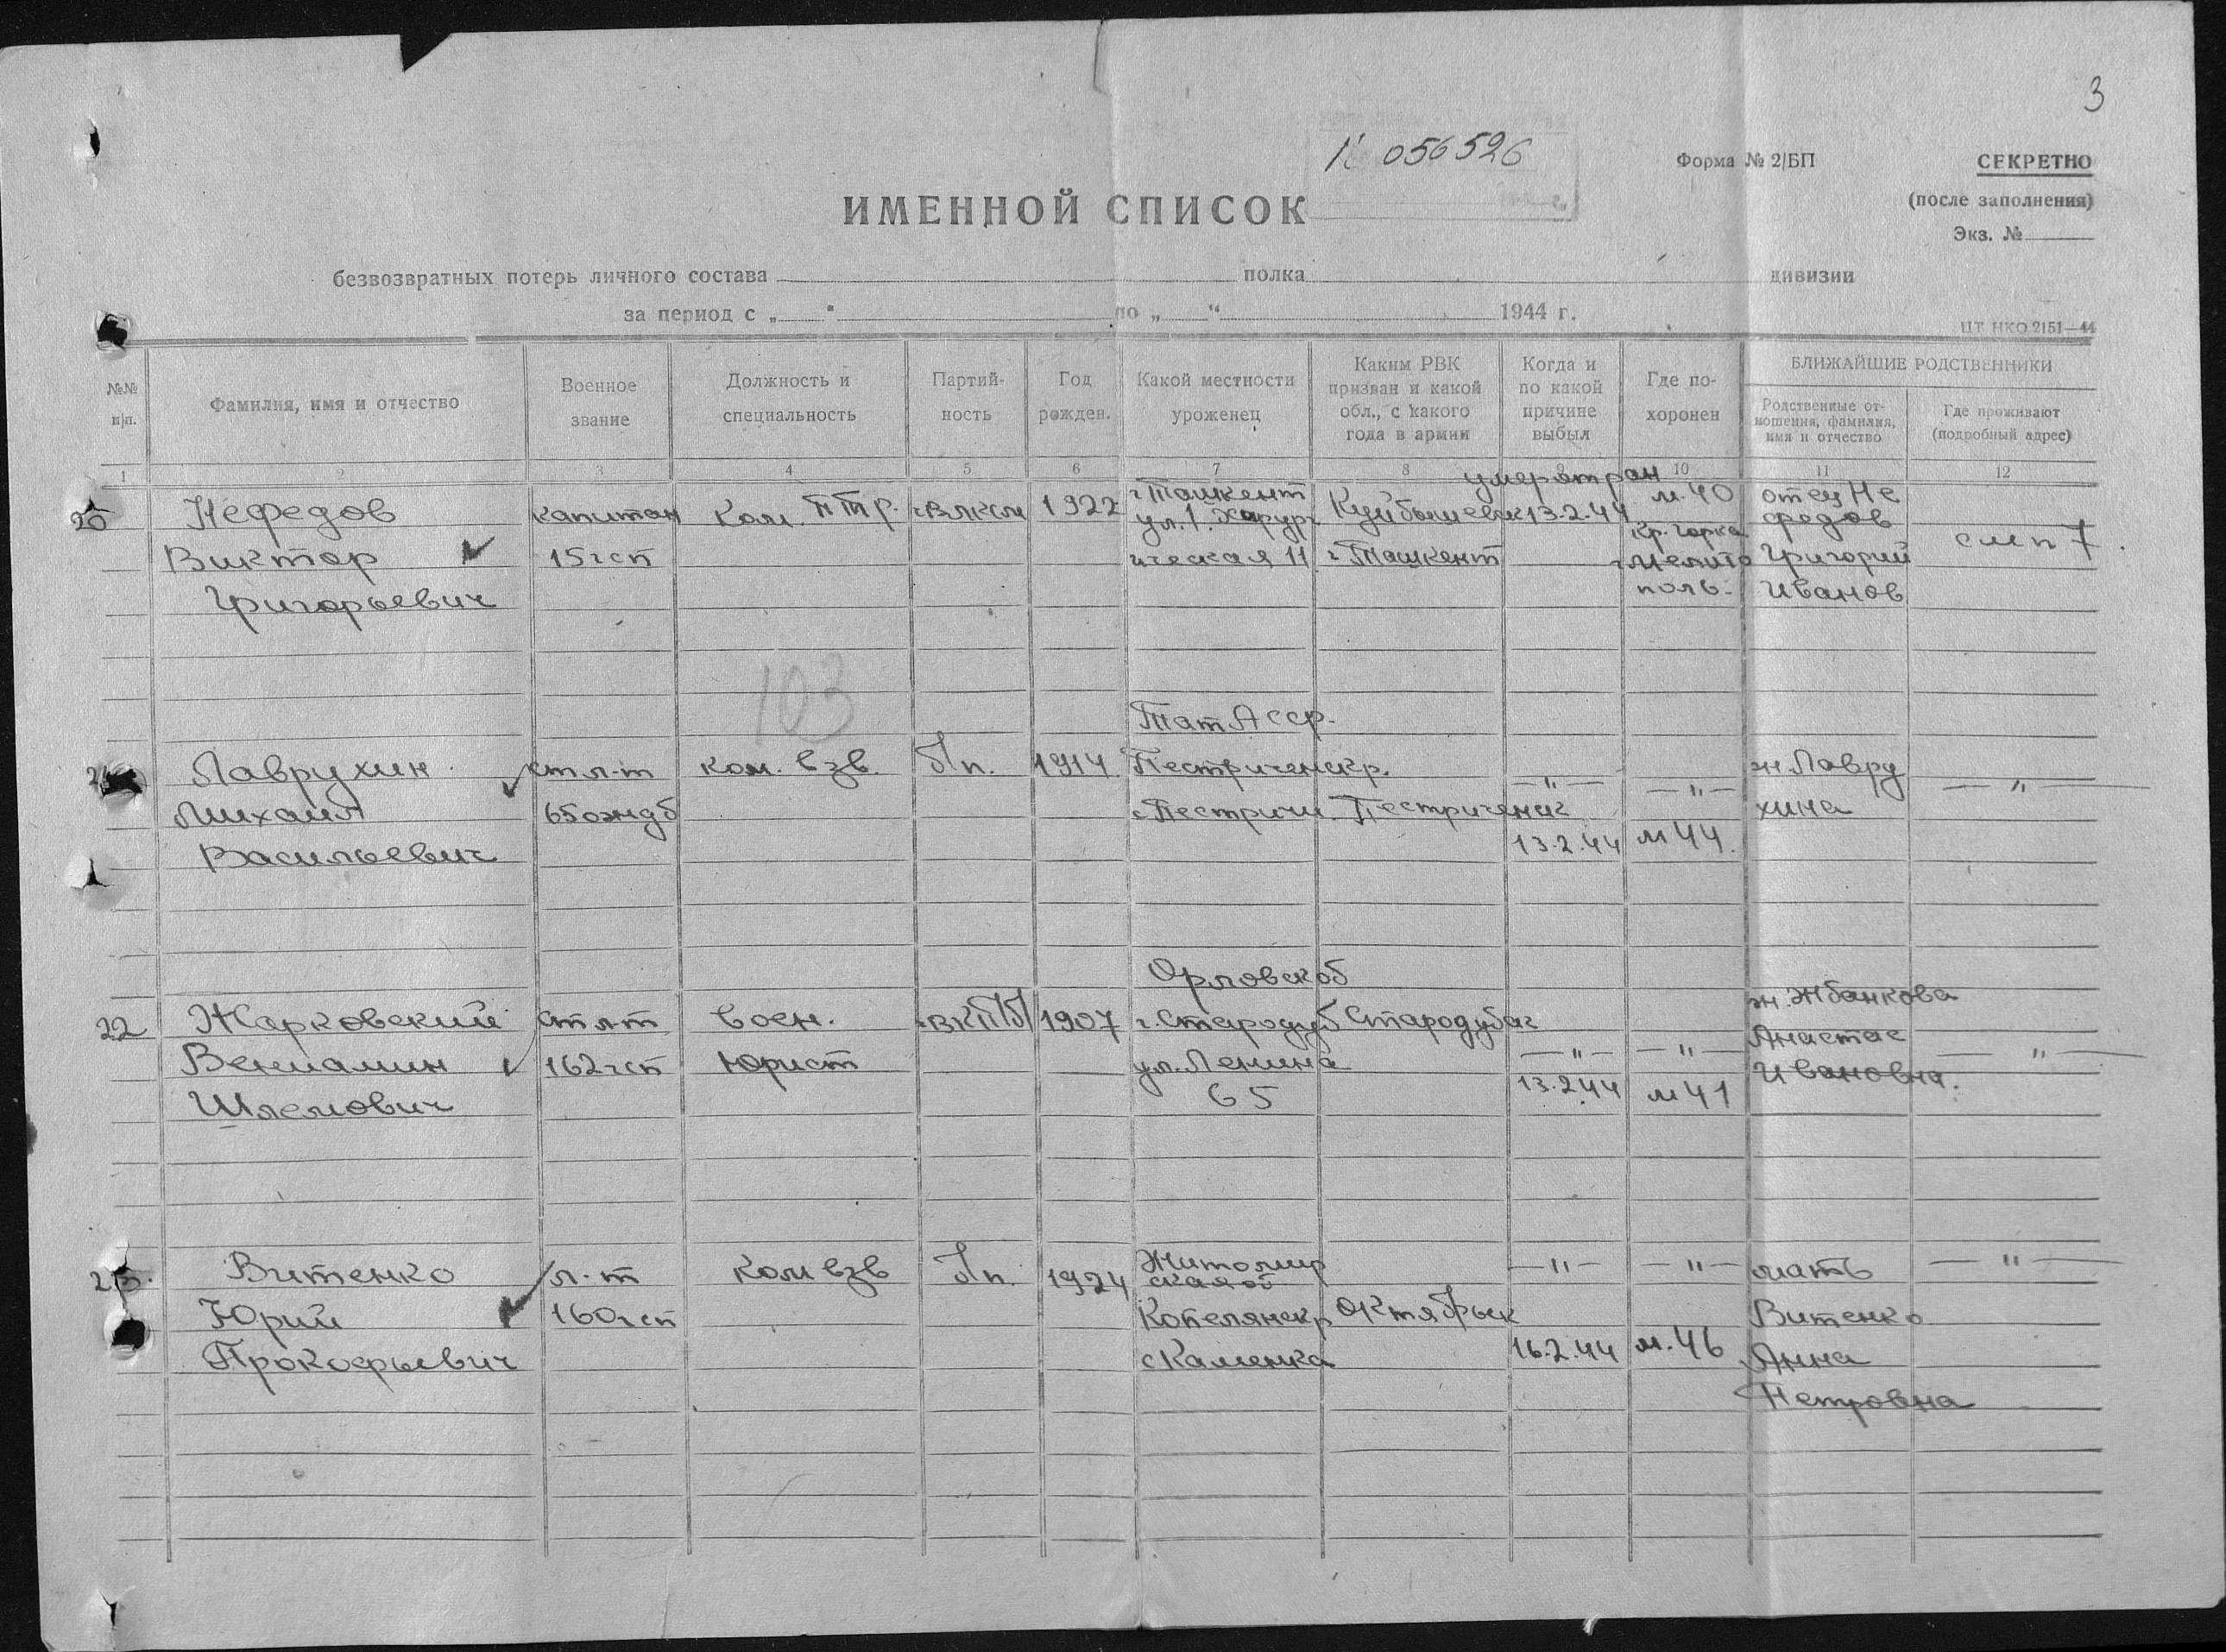 3
К 056526
Форма № 2/БП
СЕКРЕТНО
(после заполнения)
Экз. №
ИМЕННОЙ СПИСОК
безвозвратных потерь личного состава полка дивизии
за период с „ “ по „ “ 1944 г.
ЦТ НКО 2151—44
№№ п/п.
Фамилия, имя и отчество
Военное звание
Должность и специальность
Партий-ность
Год рожден.
Какой местности уроженец
Каким РВК призван и какой обл., с какого года в армии
Когда и по какой причине выбыл
Где по-хоронен
БЛИЖАЙШИЕ РОДСТВЕННИКИ
Родственные от-ношения, фамилия, имя и отчество
Где проживают (подробный адрес)
1 2 3 4 5 6 7 8 9 10 11 12
умер от ран
г Ташкент м. 40 отец Не
20 Нефедов капитан Ком. ПТР. ВЛКСМ 1922 ул. 1. Хирург Куйбышевск 13.2.44 Кр. Горка федов
Виктор 15 гсп ическая 11 г Ташкент г Мелито Григорий см п 7.
Григорьевич поль. Иванов
103
Тат АССР.
Лаврухин ст л-т ком. взв. б/п. 1914 Пестриченск р. — " — — " — ж. Лавру — " —
Михаил 65 ождб с Пестричи Пестриченск хина
Васильевич 13.2.44 м 44.
Орловск об
ж. Жбанкова
22 Жарковский ст л-т Воен. ВКП/б/ 1907 г. Стародуб Стародубск Анастас
Вениамин 162 гсп Юрист ул. Ленина — " — — " — Ивановна. — " —
Шлемович 65 13.2.44 м 41
23. Витенко л-т Ком взв б/п. 1924 Житомир ская об — " — — " — мать — " —
Юрий 160 гсп Котелянск р Октябрьск Витенко
Прокофьевич с Каменка 16.2.44 м. 46 Анна
Петровна